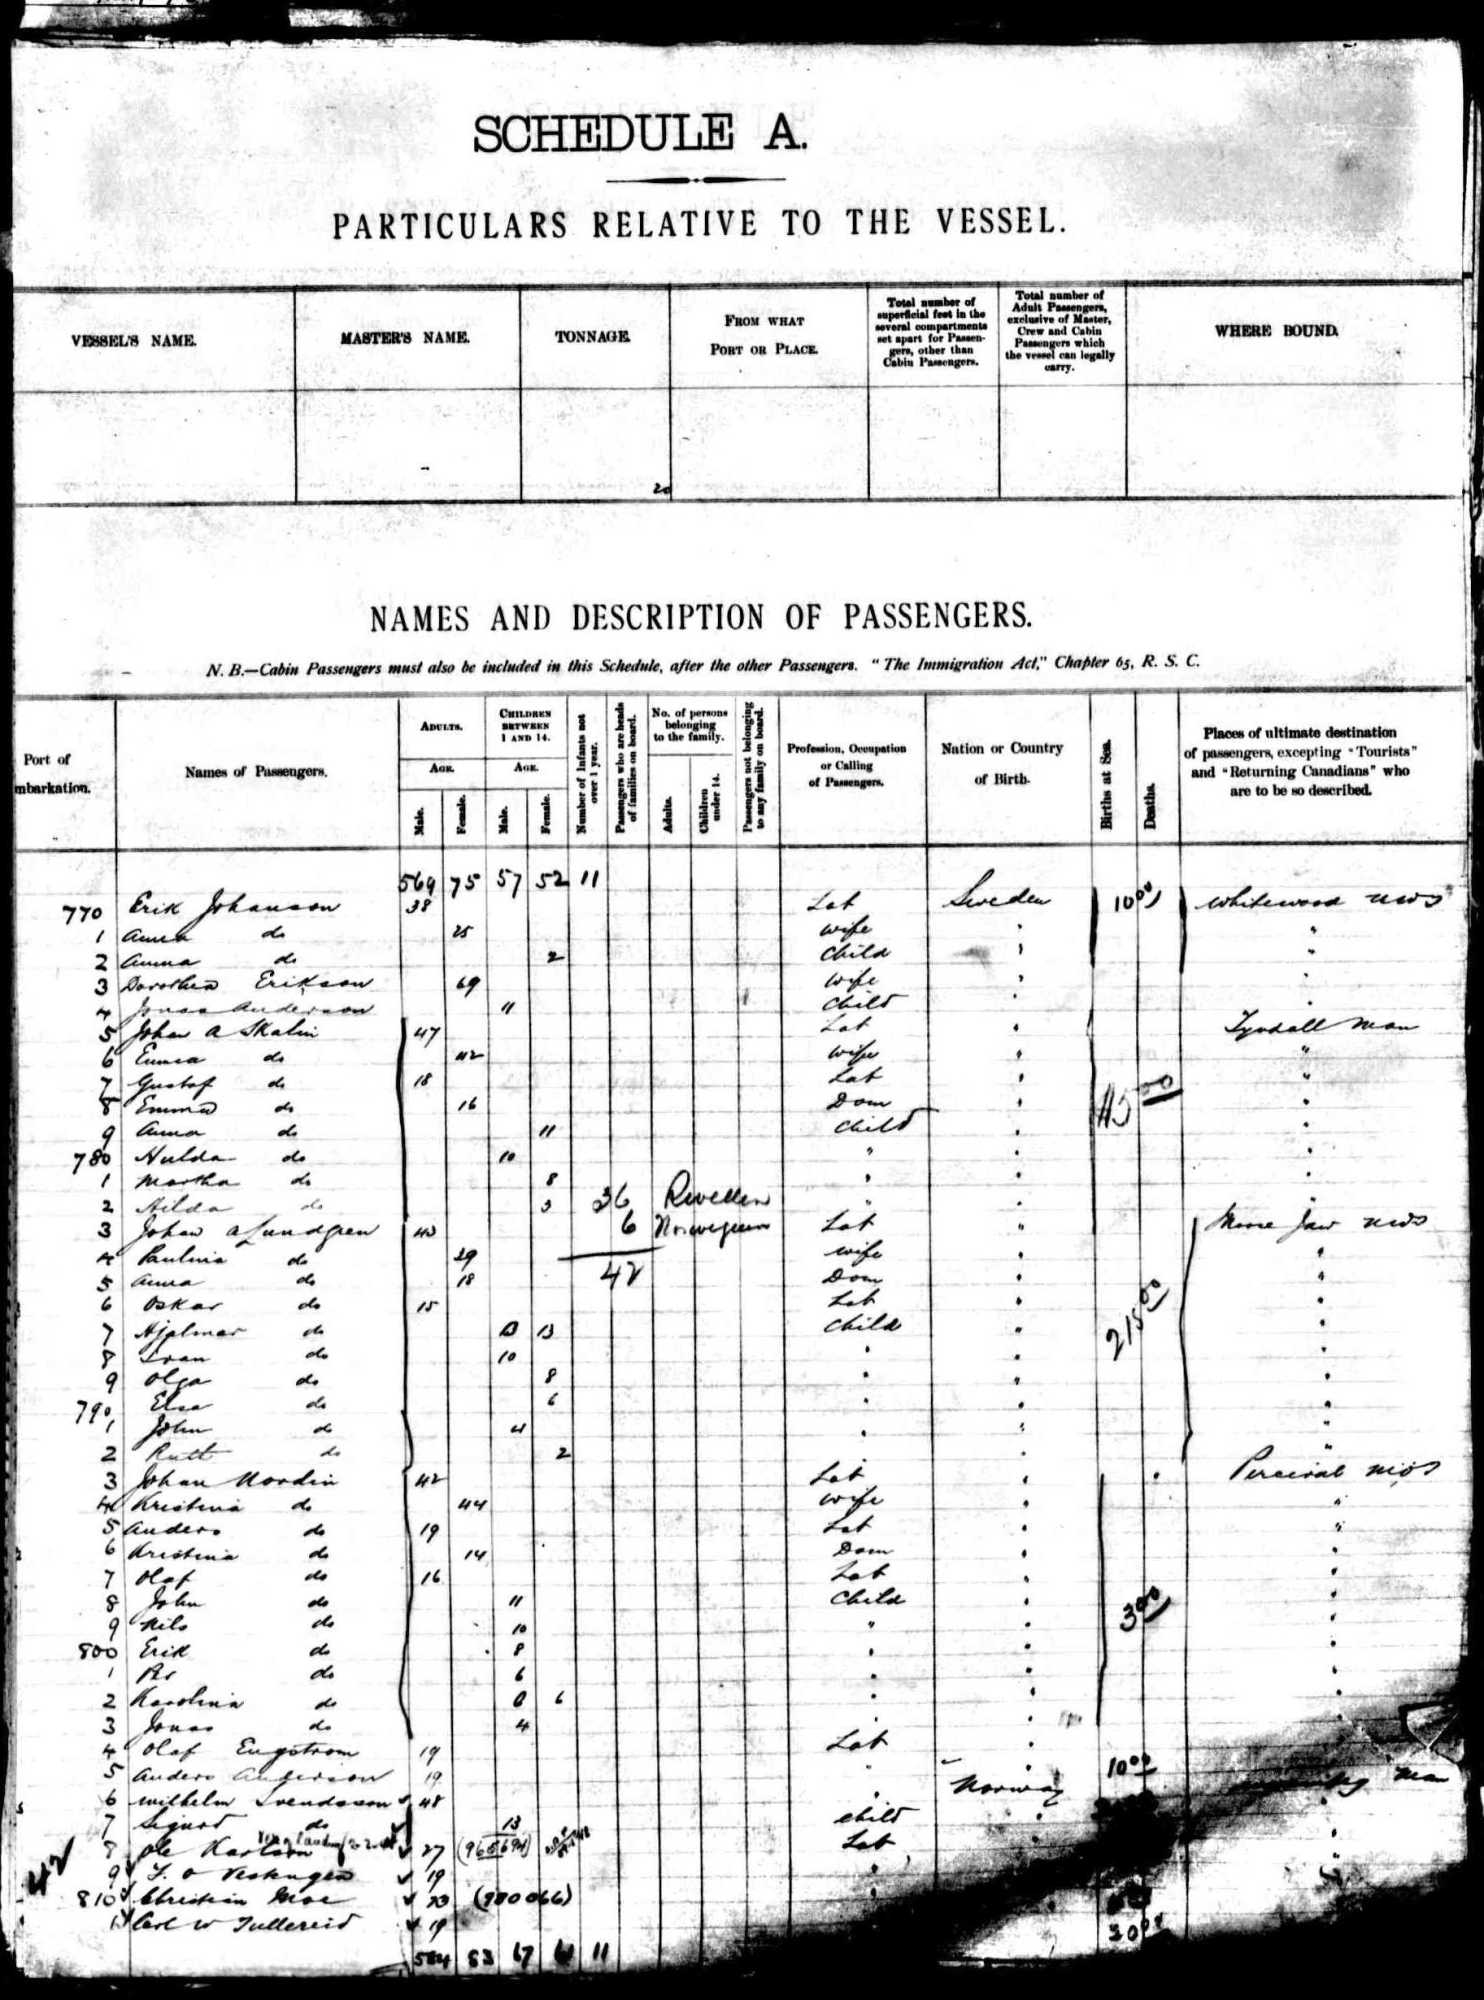 SCHEDULE A.
PARTICULARS RELATIVE TO THE VESSEL.
VESSEL'S NAME.
MASTER'S NAME.
TONNAGE.
FROM WHAT PORT OR PLACE.
Total number of superficial feet in the several compartments set apart for Passengers, other than Cabin Passengers.
Total number of Adult Passengers, exclusive of Master, Crew and Cabin Passengers which the vessel can legally carry.
WHERE BOUND.
20
NAMES AND DESCRIPTION OF PASSENGERS.
N. B.—Cabin Passengers must also be included in this Schedule, after the other Passengers. "The Immigration Act," Chapter 65, R. S. C.
Port of mbarkation.
Names of Passengers.
ADULTS.
AGE.
Male.
Female.
CHILDREN BETWEEN 1 AND 14.
AGE.
Male.
Female.
Number of Infants not over 1 year.
Passengers who are heads of families on board.
No. of persons belonging to the family.
Adults.
Children under 14.
Passengers not belonging to any family on board.
Profession, Occupation or Calling of Passengers.
Nation or Country of Birth.
Births at Sea.
Deaths.
Places of ultimate destination of passengers, excepting "Tourists" and "Returning Canadians" who are to be so described.
569 75 57 52 11
770 Erik Johanson 38 Lab Sweden 10 00 Whitewood NWS
1 Anna do 25 wife " "
2 Anna do 2 Child " "
3 Dorothea Erikson 69 wife " "
4 Jonas Anderson 11 Child " "
5 Johan A Skalin 47 Lab " Tyndall Man
6 Emma do 42 wife " "
7 Gustaf do 18 Lab " "
8 Emma do 16 Dom " 45 00 "
9 Anna do 11 Child " "
780 Hulda do 10 " " "
1 Martha do 8 " " "
2 Hilda do 3 36 " " "
3 Johan A Lundgren 40 6 Norwegians Lab " Moose Jaw NWS
4 Paulina do 39 wife " "
5 Anna do 18 42 Dom " "
6 Oskar do 15 Lab " "
7 Hjalmar do 13 Child " 215 00 "
8 Ivan do 10 " " "
9 Olga do 8 " " "
790 Elsa do 6 " " "
1 John do 4 " " "
2 Rutt do 2 " " "
3 Johan Nordin 42 Lab " Percival NWS
4 Kristina do 44 wife " "
5 Anders do 19 Lab " "
6 Kristina do 14 Dom " "
7 Olaf do 16 Lab " "
8 John do 11 Child " 3 00 "
9 Nils do 10 " " "
800 Erik do 8 " " "
1 Per do 6 " " "
2 Karolina do 6 " " "
3 Jonas do 4 " " "
4 Olaf Engstrom 19 Lab "
5 Anders Anderson 19 " " 10 00
6 Wilhelm Svendsson 48 " Norway Man
7 Sigurd do 13 child "
8 Ole Karlson 27 Lab
9 19 "
810 Christian Moe 20 "
1 Carl W Tullereid 19 30
42
584 83 67 61 11